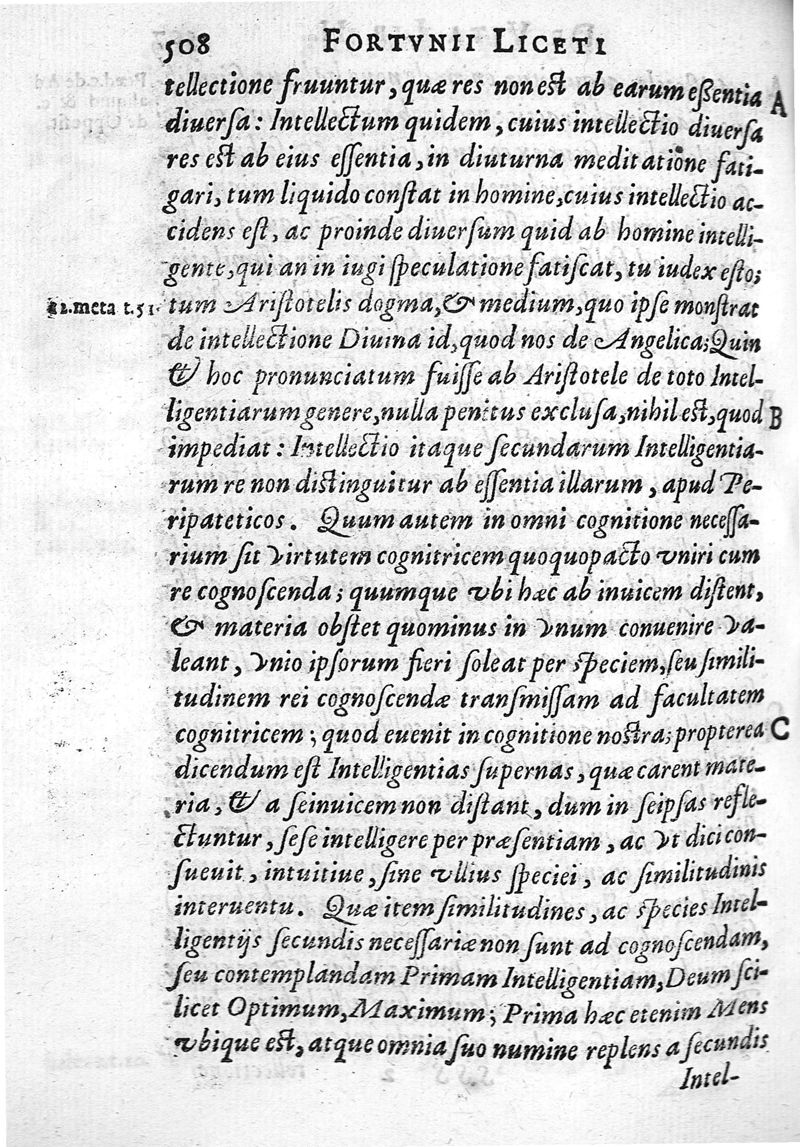 508 FORTVNII LICETI
tellectione fruuntur, quæ res non est ab earum eſſentia A
diuerſa: Intellectum quidem, cuius intellectio diuerſa
res est ab eius eſſentia, in diuturna meditatione fati-
gari, tum liquido conſtat in homine, cuius intellectio ac-
cidens eſt, ac proinde diuerſum quid ab homine intelli-
gente, qui an in iugi ſpeculatione fatiſcat, tu iudex eſto;
12.meta t.51. tum Ariſtotelis dogma, & medium, quo ipſe monſtrat
de intellectione Diuina id, quod nos de Angelica; Quin
& hoc pronunciatum fuiſſe ab Ariſtotele de toto Intel-
ligentiarum genere, nulla penitus excluſa, nihil est, quod B
impediat: Intellectio itaque ſecundarum Intelligentia-
rum re non distinguitur ab eſſentia illarum, apud Pe-
ripateticos. Quum autem in omni cognitione neceſſa-
rium ſit virtutem cognitricem quoquopacto vniri cum
re cognoſcenda; quumque vbi hæc ab inuicem diſtent,
& materia obſtet quominus in vnum conuenire va-
leant, vnio ipſorum fieri ſoleat per ſpeciem, ſeu ſimili-
tudinem rei cognoſcendæ tranſmiſſam ad facultatem
cognitricem; quod euenit in cognitione nostra; propterea C
dicendum eſt Intelligentias ſupernas, quæ carent mate-
ria, & a ſeinuicem non diſtant, dum in ſeipſas refle-
ctuntur, ſeſe intelligere per præſentiam, ac vt dici con-
ſueuit, intuitiue, ſine vllius ſpeciei, ac ſimilitudinis
interuentu. Quæ item ſimilitudines, ac ſpecies Intel-
ligentijs ſecundis neceſſariæ non ſunt ad cognoſcendam,
ſeu contemplandam Primam Intelligentiam, Deum ſci-
licet Optimum, Maximum; Prima hæc etenim Mens
vbique est, atque omnia ſuo numine replens a ſecundis
Intel-